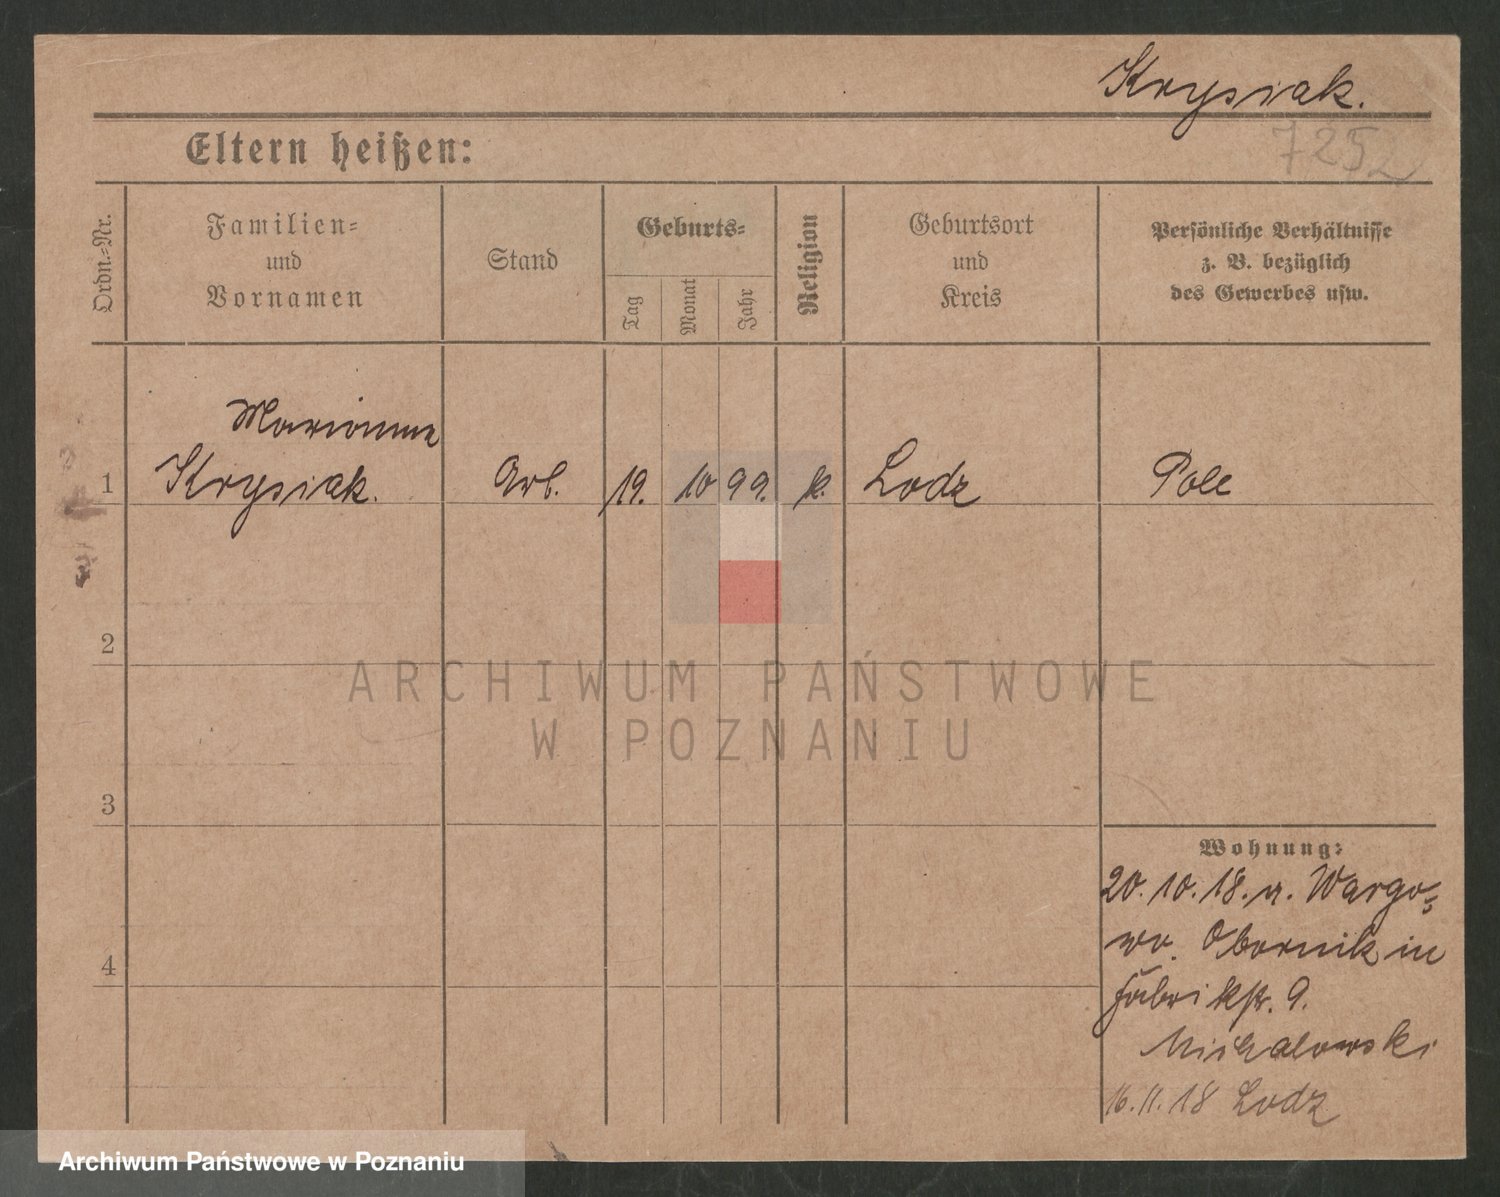 Krysiak.
7252
Eltern heißen:
Ordn.=Nr.
Familien=
und
Vornamen
Stand
Geburts=
Tag
Monat
Jahr
Religion
Geburtsort
und
Kreis
Persönliche Verhältnisse
z. B. bezüglich
des Gewerbes usw.
Marianna
1 Krysiak. Arb. 19. 10 99. k. Lodz Pole
2
3
4
Wohnung:
20.10.18. v. Wargo=
wo. Obornik in
Fabrikstr. 9.
Michalowski
16.11.18 Lodz
ARCHIWUM PAŃSTWOWE
W POZNANIU
Archiwum Państwowe w Poznaniu